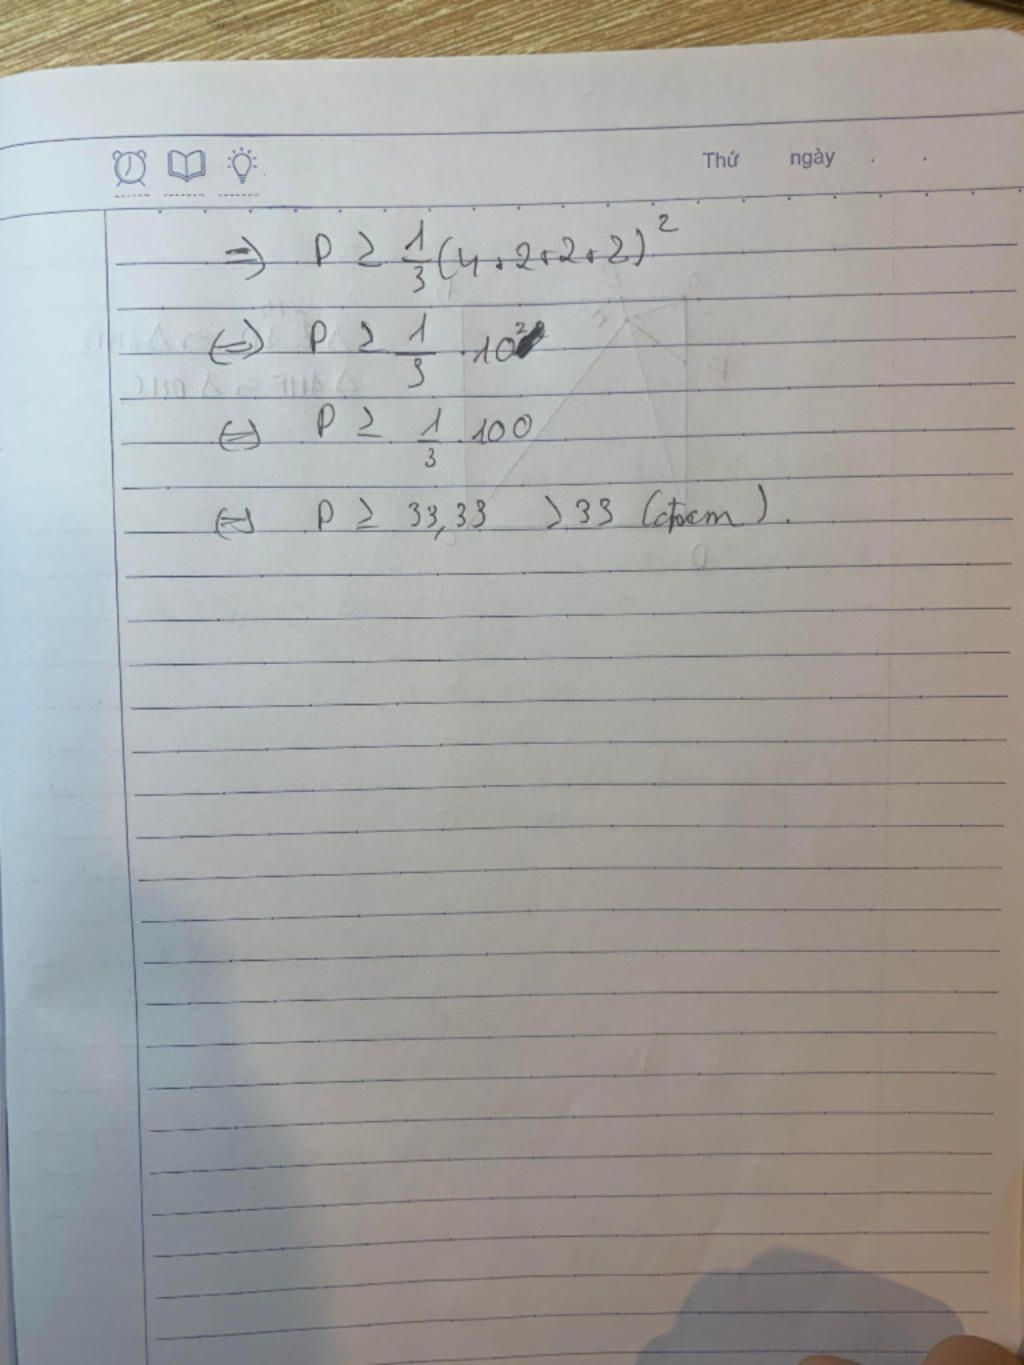 Thứ ngày . .
=> P ≥ 1/3 (4+2+2+2)²
<=> P ≥ 1/3 . 10²
<=> P ≥ 1/3 . 100
<=> P ≥ 33,33 > 33 (đpcm).